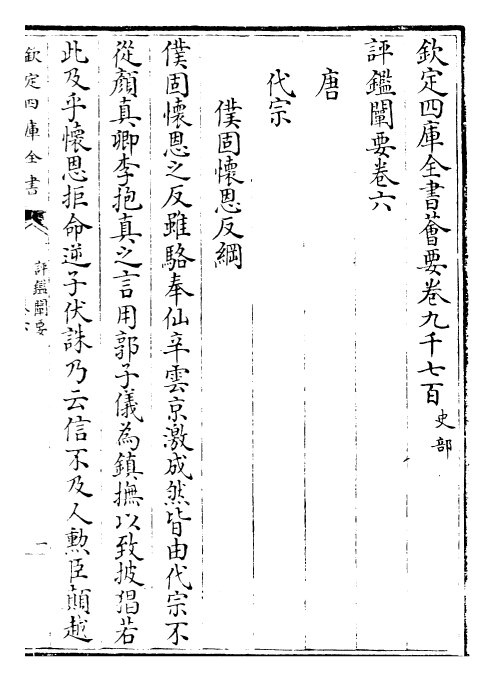 欽定四庫全書薈要卷九千七百史部
評鑑闡要卷六
唐
代宗
僕固懷恩反綱
僕固懷恩之反雖駱奉仙辛雲京激成然皆由代宗不
從顏真卿李抱真之言用郭子儀為鎮撫以致披猖若
此及乎懷恩拒命逆子伏誅乃云信不及人勲臣顛越
欽定四庫全書
評鑑闡要
一